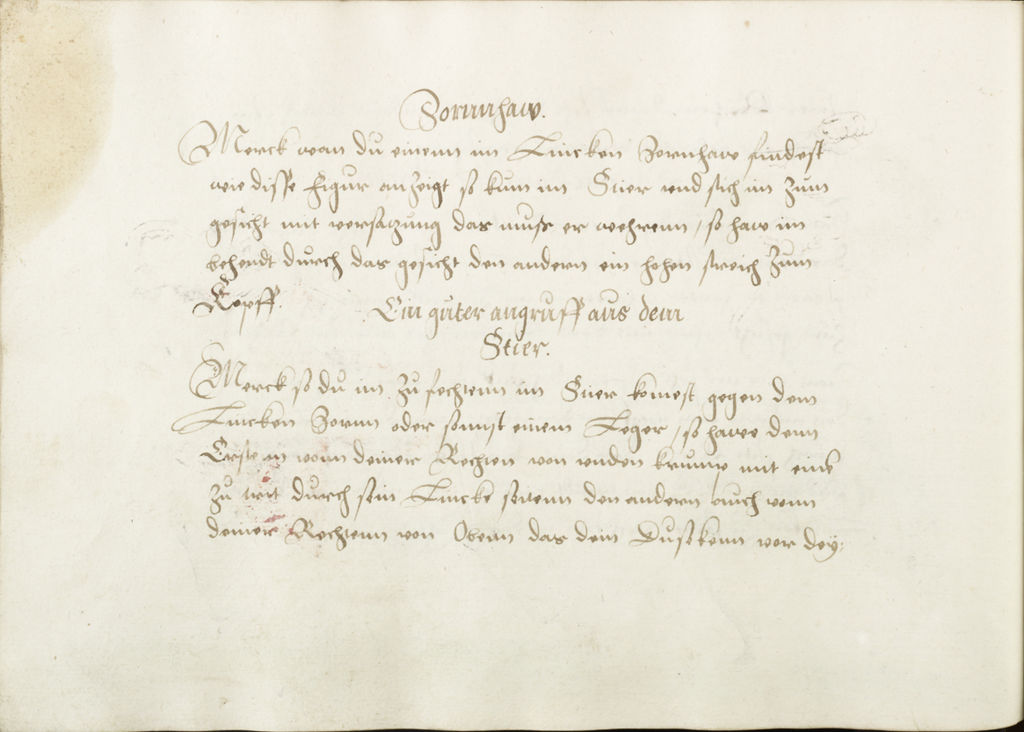 Zornnhaw.
Merck wan du einenn im Lincken Zornhaw findest
wie disse Figur anzeigt so kum im Stier vnd stich im zum
gesicht mit versatzung das muss er wehrenn / so haw im
behendt durch das gesicht den andern ein hohen streich zum
Kopff.
Ein guter angruff aus dem
Stier.
Merck so du im zu fechtenn im Stier komest gegen dem
Lincken Zornn oder sonnst einem Leger / so hawe denn
Ersten vonn deiner Rechten von vnden krump mit einē
zu trit durch sein Lincke seitenn den andern auch vonn
deiner Rechtenn von Obenn das dein Dusskenn vor dey,